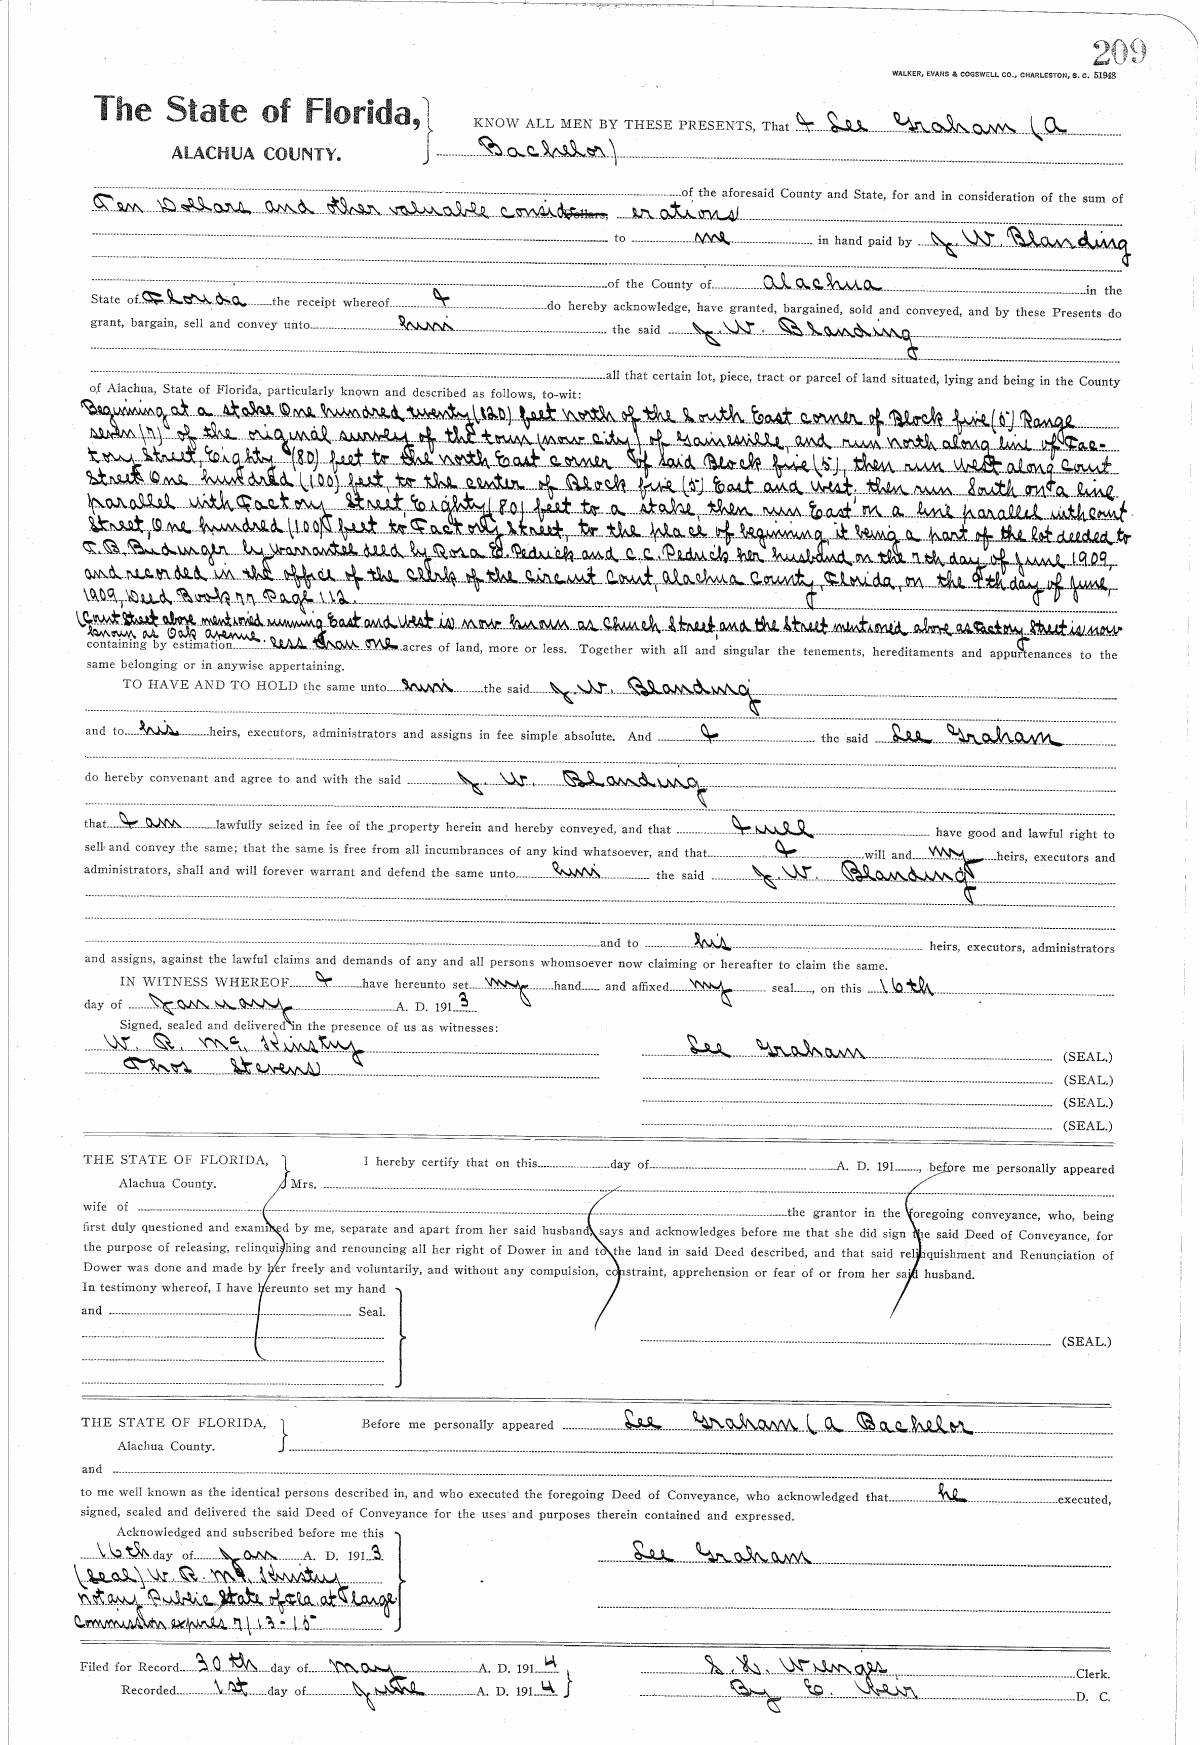 209
WALKER, EVANS & COGSWELL CO., CHARLESTON, S. C. 51948
The State of Florida,
ALACHUA COUNTY.
KNOW ALL MEN BY THESE PRESENTS, That I Lee Graham (a
Bachelor)
of the aforesaid County and State, for and in consideration of the sum of
Ten Dollars and other valuable consid erations
to me in hand paid by J. W. Blanding
of the County of Alachua in the
State of Florida the receipt whereof I do hereby acknowledge, have granted, bargained, sold and conveyed, and by these Presents do
grant, bargain, sell and convey unto him the said J. W. Blanding
all that certain lot, piece, tract or parcel of land situated, lying and being in the County
of Alachua, State of Florida, particularly known and described as follows, to-wit:
Beginning at a stake One hundred twenty (120) feet north of the South East corner of Block five (5) Range
seven (7) of the original survey of the town (now city) of Gainesville, and run north along line of Fac-
tory Street Eighty (80) feet to the north East corner of said Block five (5), then run west along Court
Street One hundred (100) feet, to the center of Block five (5) East and west, then run South on a line
parallel with Factory Street Eighty (80) feet to a stake, then run East on a line parallel with Court
Street, One hundred (100) feet to Factory Street, to the place of beginning, it being a part of the lot deeded to
T. B. Budinger by warrantee deed by Rosa E. Pedrick and C. C. Pedrick her husband on the 7th day of June 1909,
and recorded in the office of the Clerk of the Circuit Court, Alachua County, Florida, on the 9th day of June,
1909, Deed Book 77 Page 112.
(Court Street above mentioned running East and West is now known as Church Street, and the Street mentioned above as Factory Street is now
known as Oak Avenue.
containing by estimation less than one acres of land, more or less. Together with all and singular the tenements, hereditaments and appurtenances to the
same belonging or in anywise appertaining.
TO HAVE AND TO HOLD the same unto him the said J. W. Blanding
and to his heirs, executors, administrators and assigns in fee simple absolute. And I the said Lee Graham
do hereby convenant and agree to and with the said J. W. Blanding
that I am lawfully seized in fee of the property herein and hereby conveyed, and that I will have good and lawful right to
sell and convey the same; that the same is free from all incumbrances of any kind whatsoever, and that I will and my heirs, executors and
administrators, shall and will forever warrant and defend the same unto him the said J. W. Blanding
and to his heirs, executors, administrators
and assigns, against the lawful claims and demands of any and all persons whomsoever now claiming or hereafter to claim the same.
IN WITNESS WHEREOF I have hereunto set my hand and affixed my seal, on this 16th
day of January A. D. 1913
Signed, sealed and delivered in the presence of us as witnesses:
W. R. McKinstry
Thos Stevens
Lee Graham (SEAL.)
(SEAL.)
(SEAL.)
(SEAL.)
THE STATE OF FLORIDA,
Alachua County.
I hereby certify that on this day of A. D. 191 , before me personally appeared
Mrs.
wife of the grantor in the foregoing conveyance, who, being
first duly questioned and examined by me, separate and apart from her said husband, says and acknowledges before me that she did sign the said Deed of Conveyance, for
the purpose of releasing, relinquishing and renouncing all her right of Dower in and to the land in said Deed described, and that said relinquishment and Renunciation of
Dower was done and made by her freely and voluntarily, and without any compulsion, constraint, apprehension or fear of or from her said husband.
In testimony whereof, I have hereunto set my hand
and Seal.
(SEAL.)
THE STATE OF FLORIDA,
Alachua County.
Before me personally appeared Lee Graham (a Bachelor
and
to me well known as the identical persons described in, and who executed the foregoing Deed of Conveyance, who acknowledged that he executed,
signed, sealed and delivered the said Deed of Conveyance for the uses and purposes therein contained and expressed.
Acknowledged and subscribed before me this
16th day of Jan A. D. 1913
(Seal) W. R. McKinstry
Notary Public State of Fla at large
Commission expires 7/13-15
Lee Graham
Filed for Record 30th day of May A. D. 1914
Recorded 1st day of June A. D. 1914
S. H. Wienges Clerk.
By E. Weir D. C.